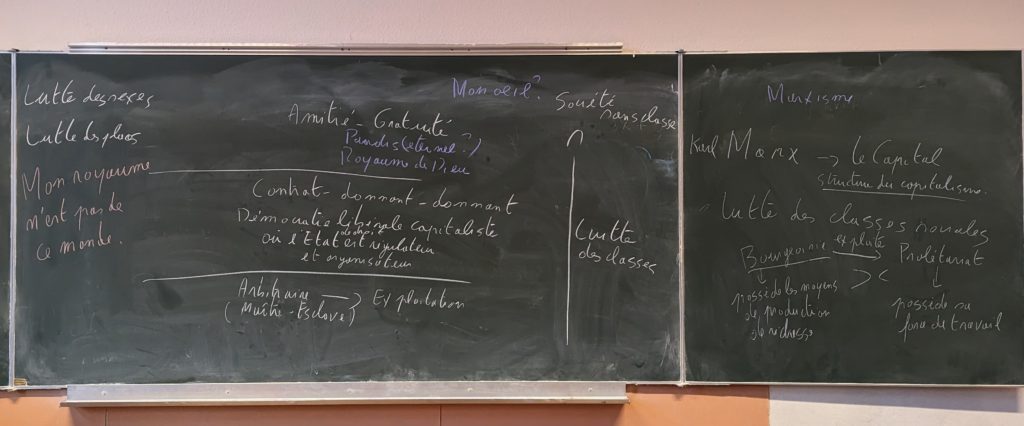 Lutte des sexes
Lutte des places
Mon royaume
n'est pas de
ce monde.
Mon oeil ?
Amitié - Gratuité
Paradis (éternel ?)
Royaume de Dieu
Contrat - donnant - donnant
Démocratie libérale capitaliste
où l'Etat est régulateur
et organisateur
Arbitraire → Exploitation
(Maître - Esclave)
Société
sans classe
Lutte
des classes
Marxisme
Karl Marx → Le Capital
structure du capitalisme.
Lutte des classes sociales
Bourgeoisie exploite Prolétariat
> <
possède les moyens
de production
de richesse
possède sa
force de travail